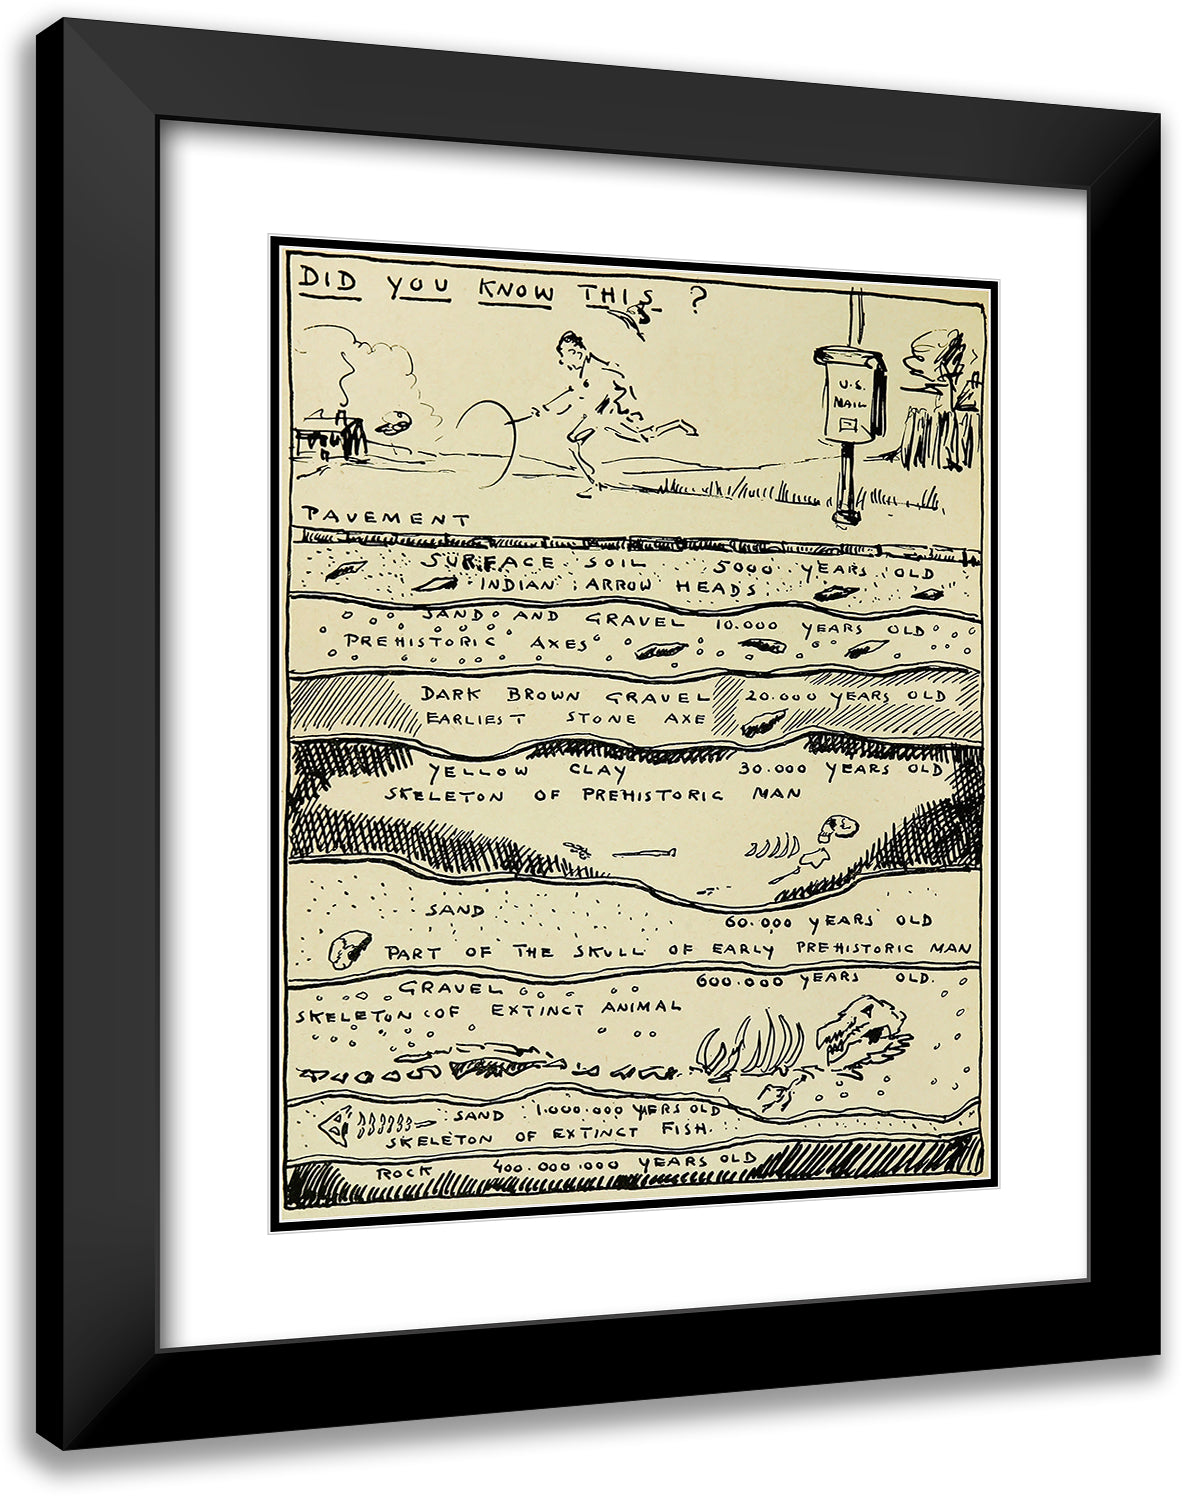 DID YOU KNOW THIS ?
U.S.
MAIL
PAVEMENT
SURFACE SOIL 5000 YEARS OLD
INDIAN ARROW HEADS
SAND AND GRAVEL 10.000 YEARS OLD
PREHISTORIC AXES
DARK BROWN GRAVEL 20.000 YEARS OLD
EARLIEST STONE AXE
YELLOW CLAY 30.000 YEARS OLD
SKELETON OF PREHISTORIC MAN
SAND 60.000 YEARS OLD
PART OF THE SKULL OF EARLY PREHISTORIC MAN
GRAVEL 600.000 YEARS OLD.
SKELETON OF EXTINCT ANIMAL
SAND 1.000.000 YERS OLD
SKELETON OF EXTINCT FISH.
ROCK 400.000.000 YEARS OLD